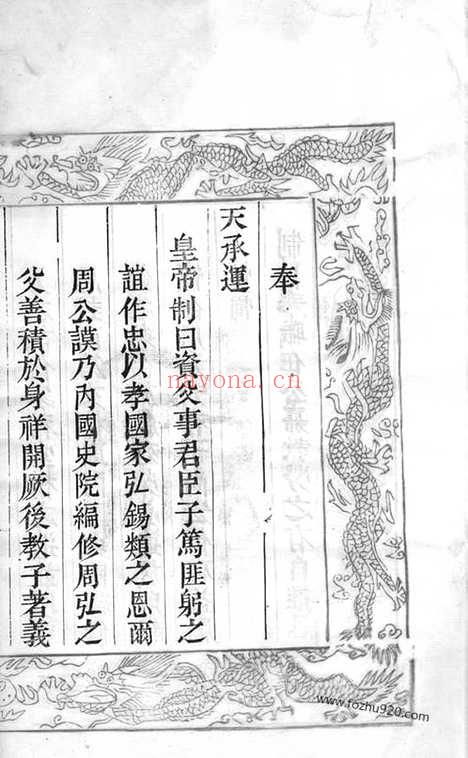 奉
天承運
皇帝制曰資父事君臣子篤匪躬之
誼作忠以孝國家弘錫類之恩爾
周公謨乃內國史院編修周弘之
父善積於身祥開厥後教子著義
nayona.cn
www.fozhu920.com